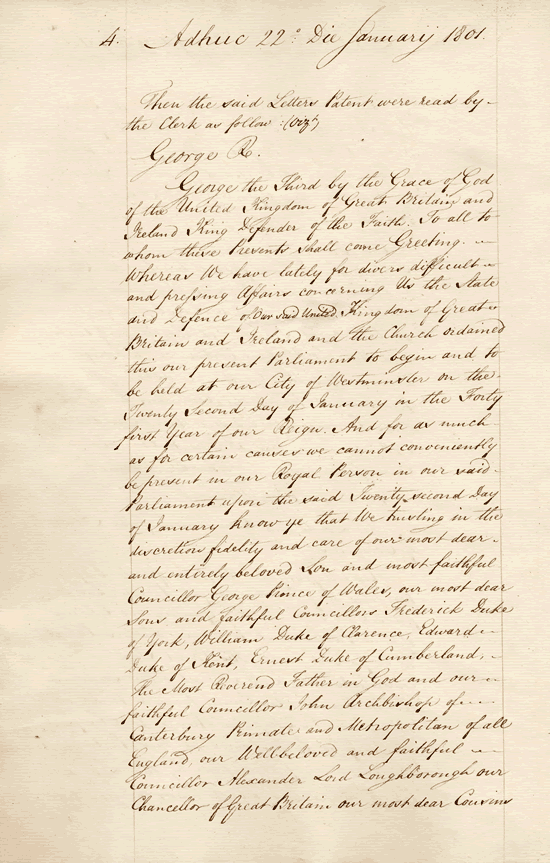 4. Adhuc 22° Die January 1801.
Then the said Letters Patent were read by
the Clerk as follow :(vizt)
George R.
George the Third by the Grace of God
of the United Kingdom of Great Britain and
Ireland King Defender of the Faith. To all to
whom these Presents shall come Greeting.
Whereas We have lately for divers difficult
and pressing Affairs concerning Us the State
and Defence of Our said United Kingdom of Great
Britain and Ireland and the Church ordained
this our present Parliament to begin and to
be held at our City of Westminster on the
Twenty Second Day of January in the Forty
first Year of our Reign. And for as much
as for certain causes we cannot conveniently
be present in our Royal Person in our said
Parliament upon the said Twenty second Day
of January know ye that We trusting in the
discretion fidelity and care of our most dear
and entirely beloved Son and most faithful
Councillor George Prince of Wales, our most dear
Sons and faithful Councillors Frederick Duke
of York, William Duke of Clarence, Edward
Duke of Kent, Ernest Duke of Cumberland,
The Most Reverend Father in God and our
faithful Councillor John Archbishop of
Canterbury Primate and Metropolitan of all
England, our Wellbeloved and faithful
Councillor Alexander Lord Loughborough our
Chancellor of Great Britain our most dear Cousins